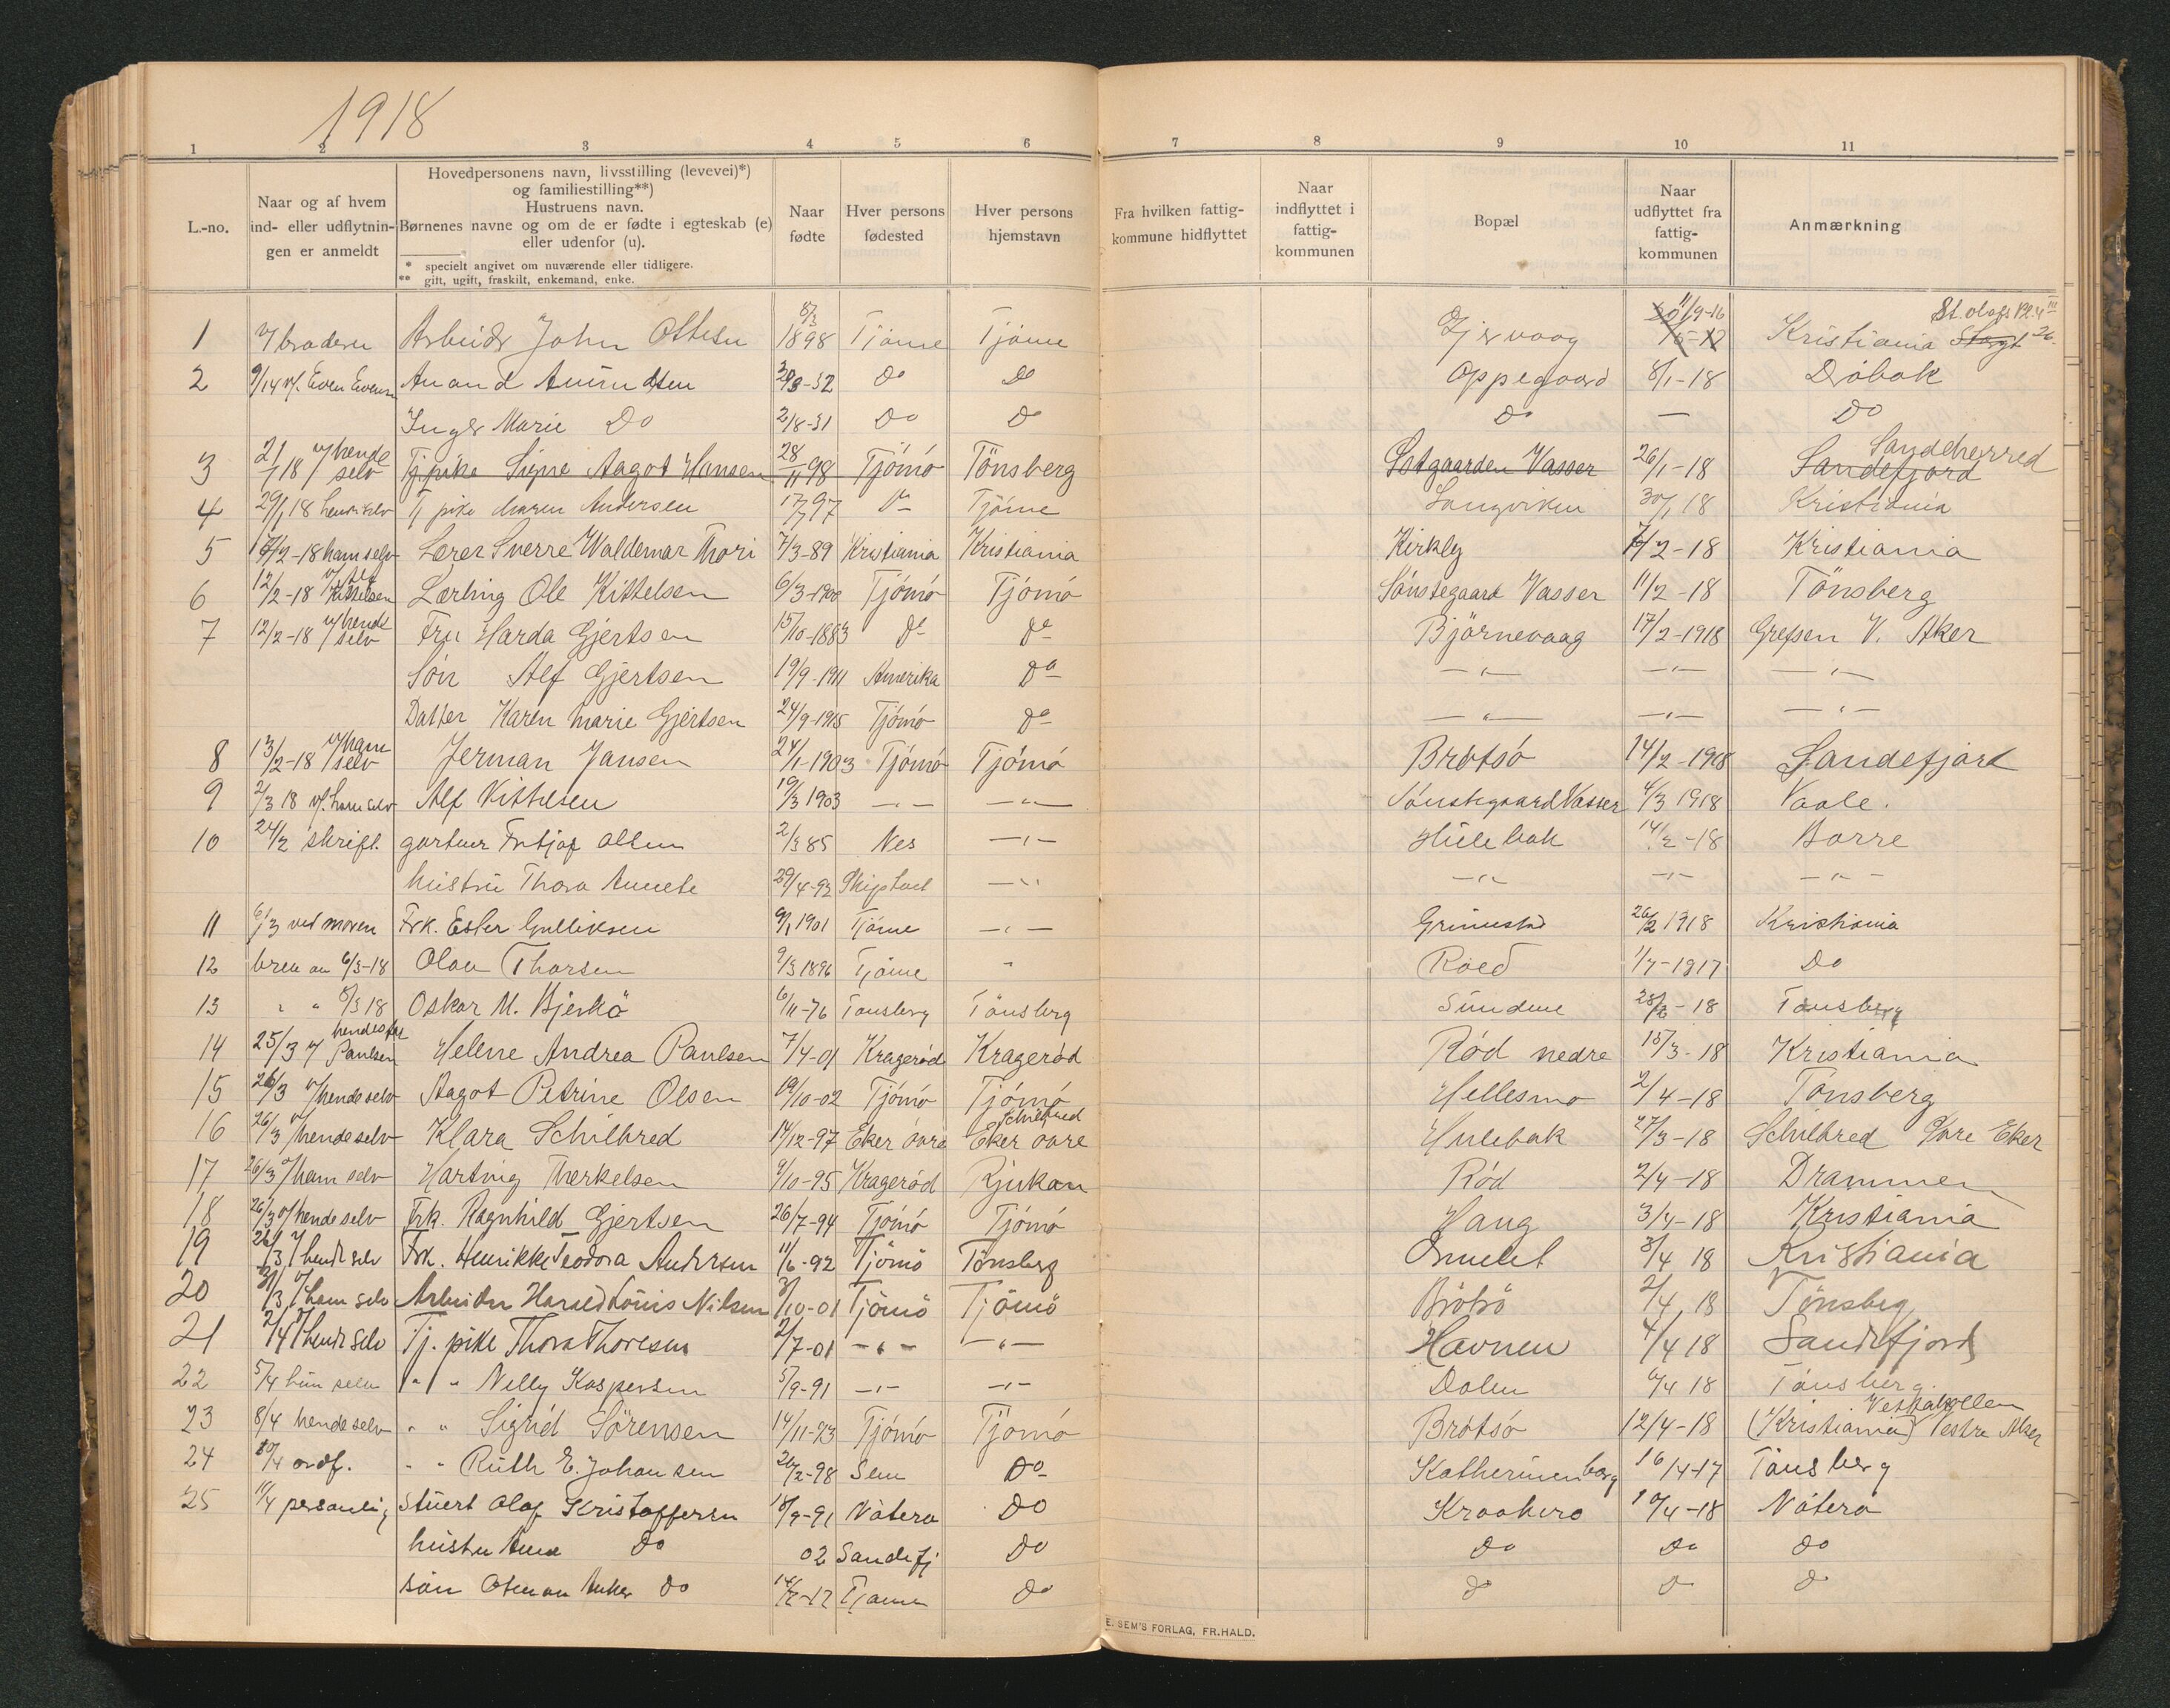 1918
1 2 3 4 5 6 7 8 9 10 11
L.-no.
Naar og af hvem
ind- eller udflytnin-
gen er anmeldt
Hovedpersonens navn, livsstilling (levevei)*)
og familiestilling**)
Hustruens navn.
Børnenes navne og om de er fødte i egteskab (e)
eller udenfor (u).
* specielt angivet om nuværende eller tidligere.
** gift, ugift, fraskilt, enkemand, enke.
Naar
fødte
Hver persons
fødested
Hver persons
hjemstavn
Fra hvilken fattig-
kommune hidflyttet
Naar
indflyttet i
fattig-
kommunen
Bopæl
Naar
udflyttet fra
fattig-
kommunen
Anmærkning
1 v/ broderen Arbeider John Ottesen 8/3 1898 Tjøme Tjøme 11/9-16 Kristiania St. olafs
2 9/1 14 v/. Even Evensen Anand Amundsen Do Do Oppegaard 8/1-18 Dröbak
Inger Marie Do 2/8-31 Do Do Do — Do
3 21/1 18 v/ hende selv Tj pike Signe Aagot Hansen 28/11 98 Tjómó Tönsberg Østgaarden Vasser 26/1-18 Sandefjord Sandeherred
4 29/1 18 hende selv Tj pike Maren Andersen 17/7 97 Do Tjøme Langviken 30/1 18 Kristiania
5 18/2-18 ham selv Lærer Sverre Waldemar Thori 7/3-89 Kristiania Kristiania Kirkeby 7/2-18 Kristiania
6 12/2-18 v/ Alf Kittelsen Lærling Ole Kittelsen 6/3-1900 Tjómó Tjómó Sönstegaard Vasser 11/2-18 Tönsberg
7 12/2-18 v/ hende selv Fru Harda Gjertsen 15/10-1883 do do Björnevaag 17/2-1918 Grefsen V. Aker
Sön Alf Gjertsen 19/9-1911 Amerika do —"— —"— —"—
Datter Karen Marie Gjertsen 24/9-1915 Tjómó do —"— —"— —"—
8 13/2-18 v/ ham selv Jerman Jansen 24/1-1903 Tjómó Tjómó Bròtsó 14/2-1918 Sandefjord
9 2/3 18 v/. ham selv Alf Kittelsen 19/3 1903 —"— —"— Sönstegaard Vasser 4/3 1918 Vaale.
10 24/2 skrift. gartner Fritjof Olsen 2/3 85 Nes —"— Hulebak 14/2-18 Borre
hustru Thora Annete 29/4-93 —"— —"— —"— —"—
11 6/3 ved moren Frk. Ester Gulliksen 9/1 1901 Tjöme —"— Grimestad 26/2 1918 Kristiania
12 brev av 6/3-18 Olav Thorsen 9/3 1896 Tjöme " Röed 1/7-1917 Do
13 " " 8/3 18 Oskar M. Bjerkö 6/11-76 Tönsberg Tönsberg Sundene 28/2-18 Tönsberg
14 25/3 v/ hendes far Paulsen Helene Andrea Paulsen 7/4-01 Kragerød Kragerød Ród nedre 15/3-18 Kristiania
15 26/3 v/ hende selv Aagot Petrine Olsen 19/10-02 Tjómó Tjómó Hellesmo 2/4-18 Tönsberg
16 26/3 v/ hende selv Klara Schilbred 14/12-97 Eker óvre Schilbred Eker óvre Hulebak 27/3-18 Schilbred Øvre Eker
17 26/3 v/ ham selv Hartvig Therkelsen 9/10-95 Kragerød Rjukan Ród 2/4-18 Drammen
18 26/3 v/ hende selv Frk. Ragnhild Gjertsen 26/7-94 Tjómó Tjómó Haug 3/4-18 Kristiania
19 26/3 v/ hende selv Frk. Henrikke Teodora Andersen 11/6-92 Tjömö Tönsberg 3/4 18 Kristiania
20 v/ ham selv Arbeider Harald Louis Nilsen 3/10-01 Tjömö Tjömö Brötsö 2/4 18 Tönsberg
21 2/4 v/ hende selv Tj. pike Thora Thoresen 2/7-01 —"— —"— Havnen 4/4 18 Sandefjord
22 5/4 hun selv " " Nelly Kaspersen 5/9-91 —"— —"— Dalen 6/4 18 Tönsberg.
23 8/4 hende selv " " Sigrid Sörensen 14/11-93 Tjómó Tjómó Bròtsó 12/4-18 (Kristiania) Vestre Aker
24 10/4 ordf. " " Ruth E. Johansen 26/2-98 Sem Do Katherinenborg 16/4-17 Tönsberg
25 11/4 personlig Stuert Olaf Kristoffersen 18/9-91 Nöterö Do Kraakero 10/4-18 Nöterö
hustru Anna Do 02 Sandefj Do Do Do do
sön Anker do Tjöme Do do do do
E. SEM'S FORLAG, FR.HALD.